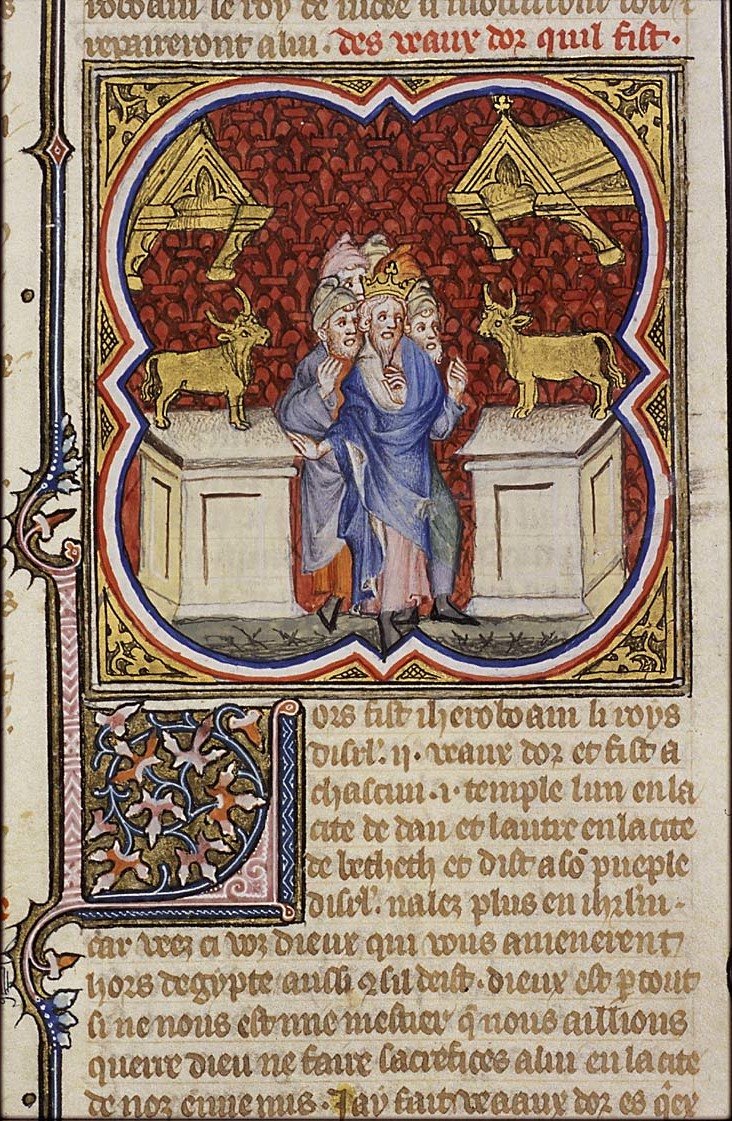 repaireront a lui · des veaux dor quil fist ·
Lors fist iheroboam li roys
disrl'. ii · veaux dor et fist a
chascun · i · temple lun en la
cite de dan et lautre en la cite
de betheth et dist a sõ pueple
disrl'. nalez plus en ihrl'm ·
car veez ci voz dieux qui vous amenerent
hors degypte aussi 9 sil deist · dieux est ꝑ tout
si ne nous est nne mestier q̃ nous aillions
querre dieu ne faire sacrefices a lui en la cite
de noz ennemis · Jay fait veaux dor es q̃ex